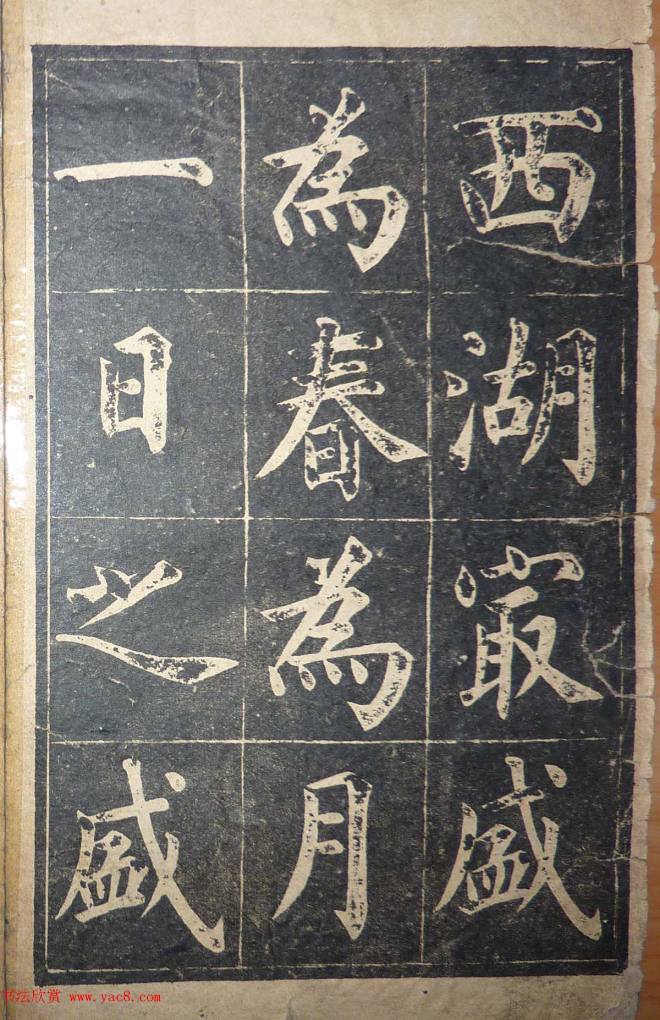 西湖寂盛
為春為月
一日之盛
书法欣赏 www.yac8.com